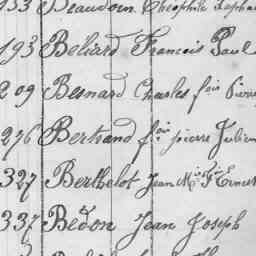 Beaudoin Théophile
193 Beliard Francois Paul
209 Besnard Charles fois Pierre
276 Bertrand fois pierre Julien
327 Berthelot Jean Mie Ernest
337 Bedon Jean Joseph